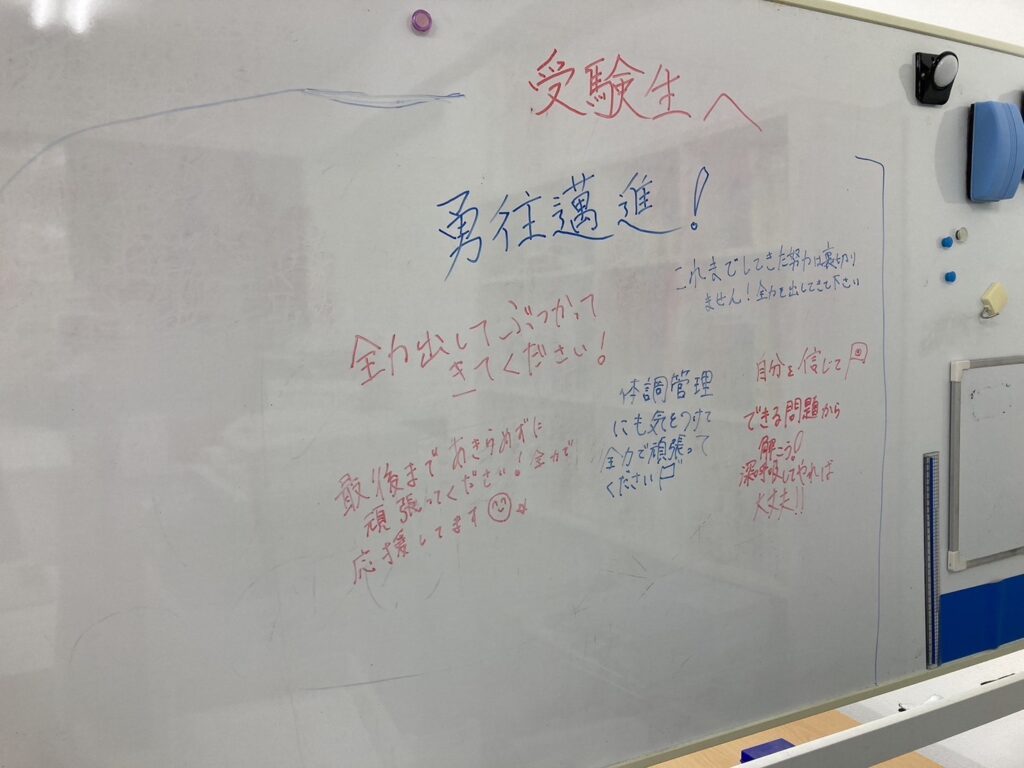 受験生へ
勇往邁進!
これまでしてきた努力は裏切り
ません!全力を出してきて下さい
全力出してぶつかって
きてください!
体調管理
にも気をつけて
全力で頑張って
ください
自分を信じて
できる問題から
解こう!
深呼吸してやれば
大丈夫!!
最後まであきらめずに
頑張ってください!全力で
応援してます